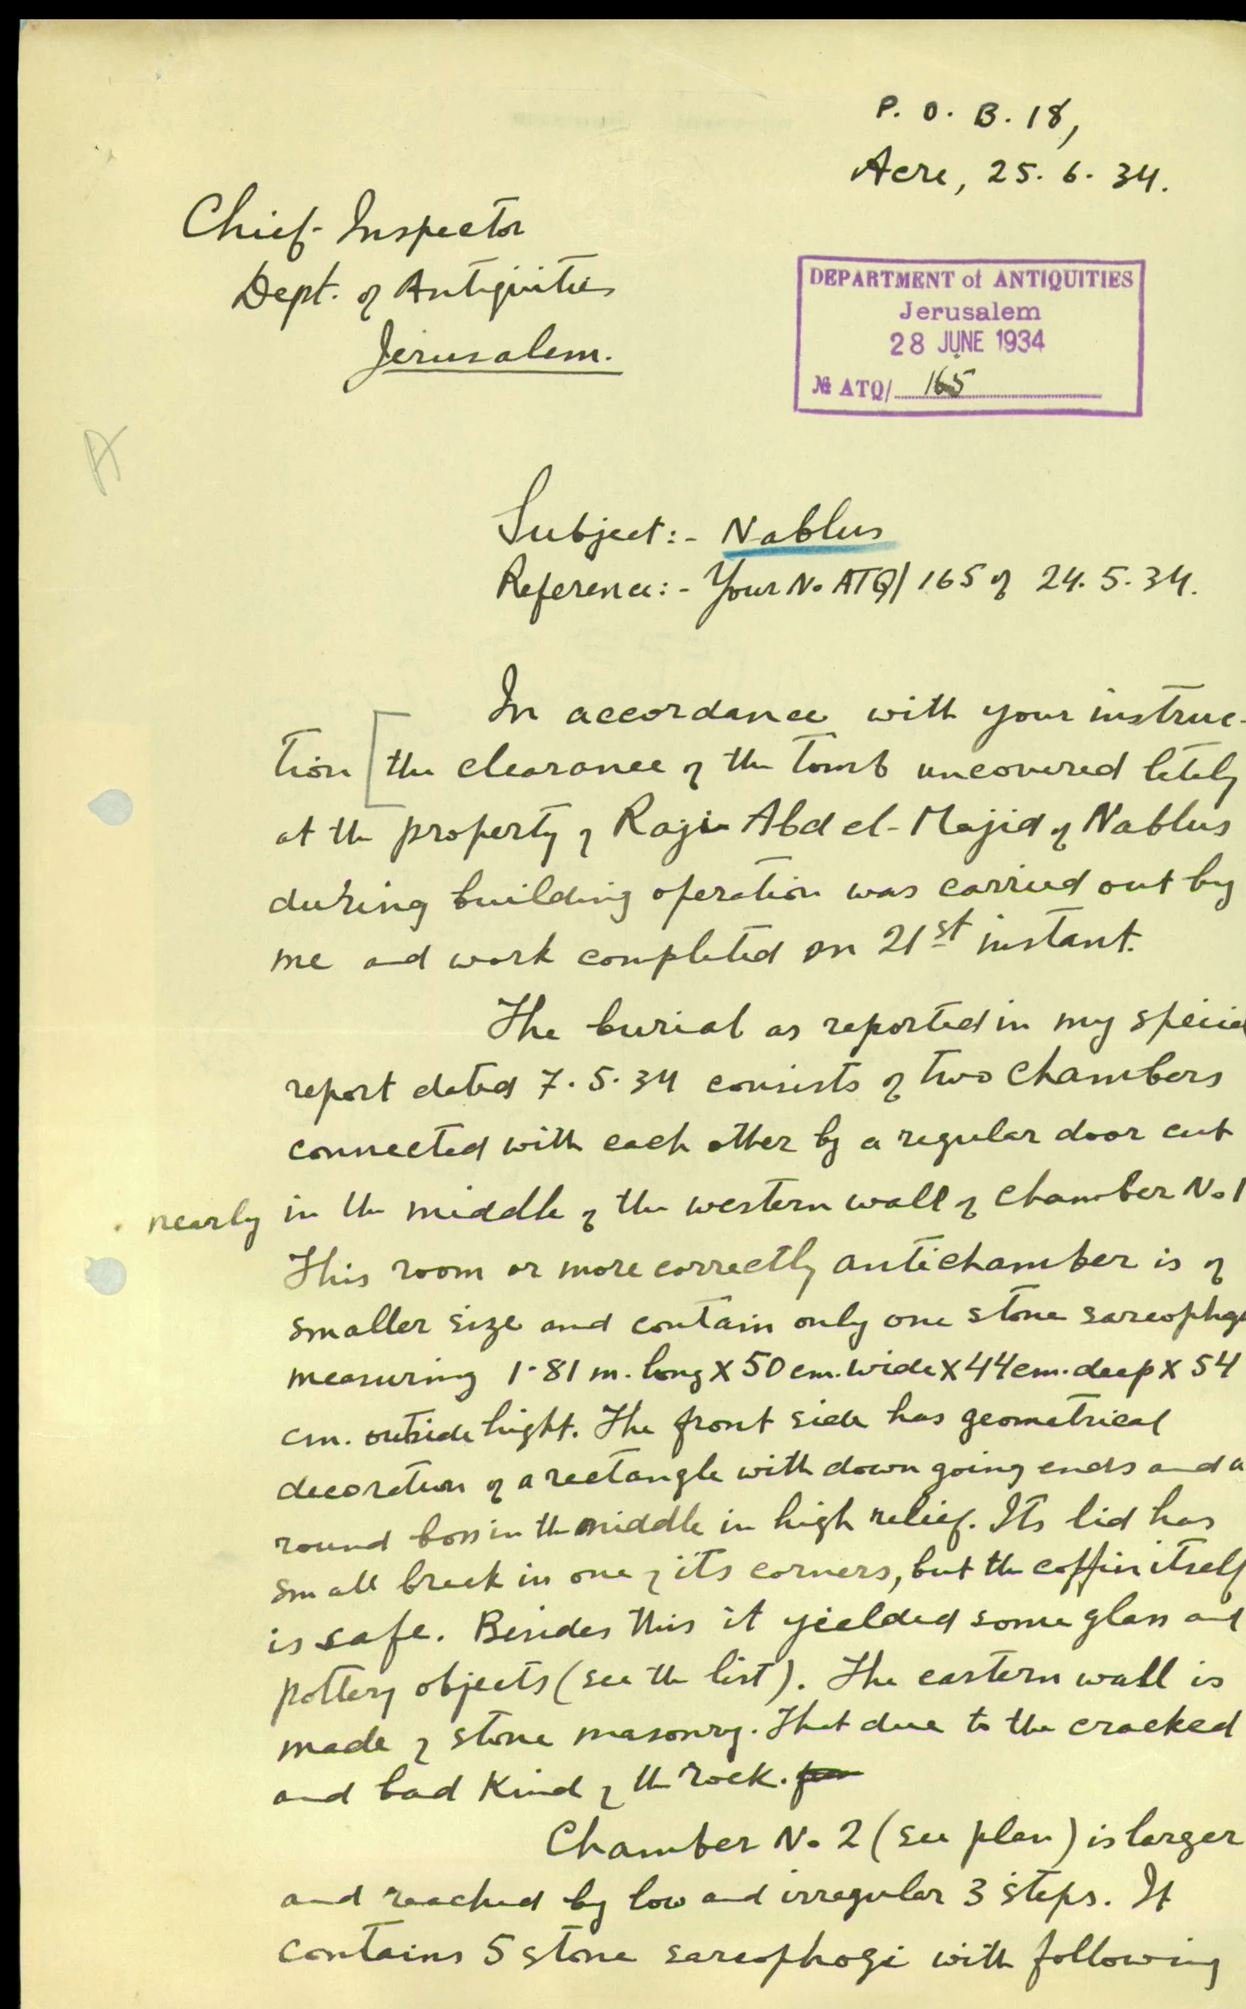 P. O. B. 18,
Acre, 25. 6. 34.
Chief-Inspector
Dept. of Antiquities
Jerusalem.
DEPARTMENT of ANTIQUITIES
Jerusalem
28 JUNE 1934
№ ATQ/ 165
A
Subject:- Nablus
Reference:- Your No ATQ/165 of 24. 5. 34.
In accordance with your instruc-
tion [the clearance of the tomb uncovered lately
at the property of Ragi Abd el-Majid of Nablus
during building operation was carried out by
me and work completed on 21st instant.
The burial as reported in my special
report dated 7. 5. 34 consists of two chambers
connected with each other by a regular door cut
nearly in the middle of the western wall of chamber No 1
This room or more correctly antichamber is of
smaller size and contain only one stone sarcophagu
measuring 1.81 m. long X 50 cm. wide X 44 cm. deep X 54
cm. outside hight. The front side has geometrical
decoration of a rectangle with down going ends and a
round boss in the middle in high relief. Its lid has
small break in one of its corners, but the coffin itself
is safe. Besides this it yielded some glass and
pottery objects (see the list). The eastern wall is
made of stone masonry. That due to the cracked
and bad kind of the rock.
Chamber No 2 (see plan) is larger
and reached by low and irregular 3 steps. It
contains 5 stone sarcophagi with following